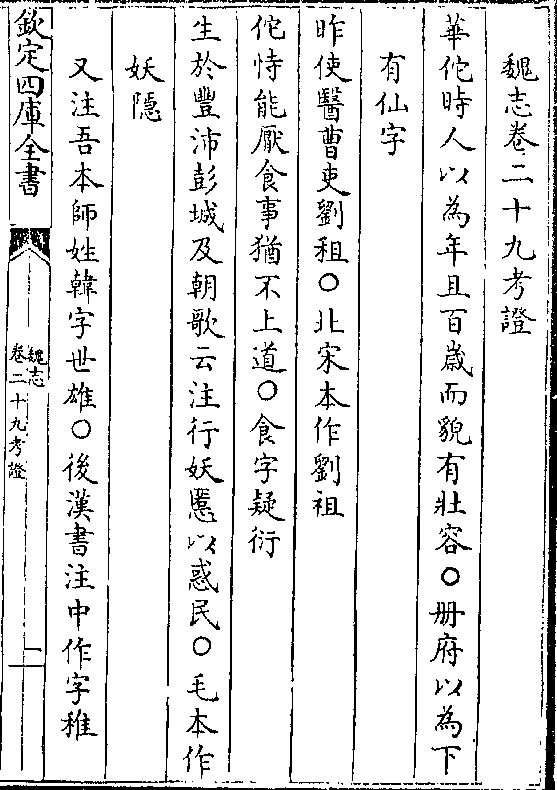 魏志卷二十九考證
華佗時人以為年且百歲而貌有壯容○册府以為下
有仙字
昨使醫曹吏劉租○北宋本作劉祖
佗恃能厭食事猶不上道○食字疑衍
生於豐沛彭城及朝歌云注行妖慝以惑民○毛本作
妖隱
又注吾本師姓韓字世雄○後漢書注中作字稚
欽定四庫全書
魏志
卷二十九考證
二